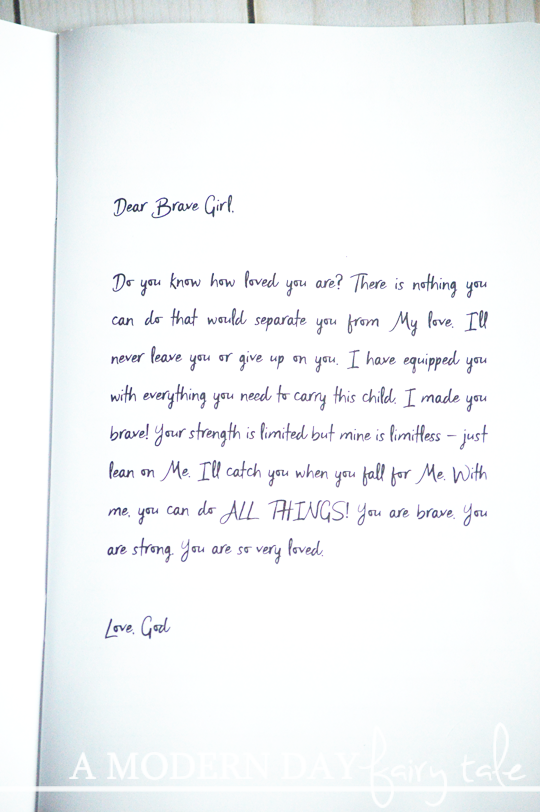 Dear Brave Girl,
Do you know how loved you are? There is nothing you
can do that would separate you from My love. I'll
never leave you or give up on you. I have equipped you
with everything you need to carry this child. I made you
brave! Your strength is limited but mine is limitless – just
lean on Me. I'll catch you when you fall for Me. With
me, you can do ALL THINGS! You are brave. You
are strong. You are so very loved.
Love, God
A MODERN DAY fairy tale